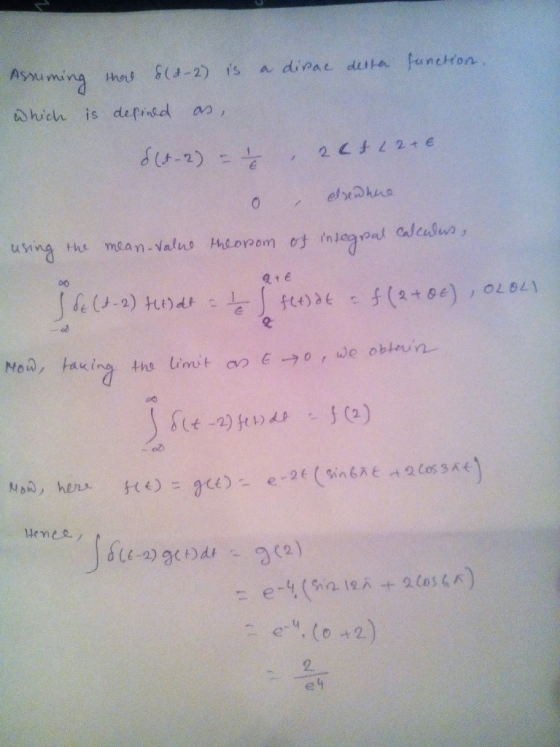 Assuming that δ(t-2) is a dirac delta function.
which is defined as,
δ(t-2) = 1/ϵ , 2 < t < 2+ϵ
0 , elsewhere
using the mean-value theorem of integral calculus,
∫_{-∞}^{∞} δ_ϵ(t-2) f(t)dt = 1/ϵ ∫_{2}^{2+ϵ} f(t)dt = f(2+θϵ), 0<θ<1
Now, taking the limit as ϵ → 0, we obtain
∫_{-∞}^{∞} δ(t-2) f(t) dt = f(2)
Now, here f(t) = g(t) = e^{-2t} (sin6πt + 2cos3πt)
Hence,
∫ δ(t-2) g(t) dt = g(2)
= e^{-4}. (sin12π + 2cos6π)
= e^{-4}. (0+2)
= 2/e^4